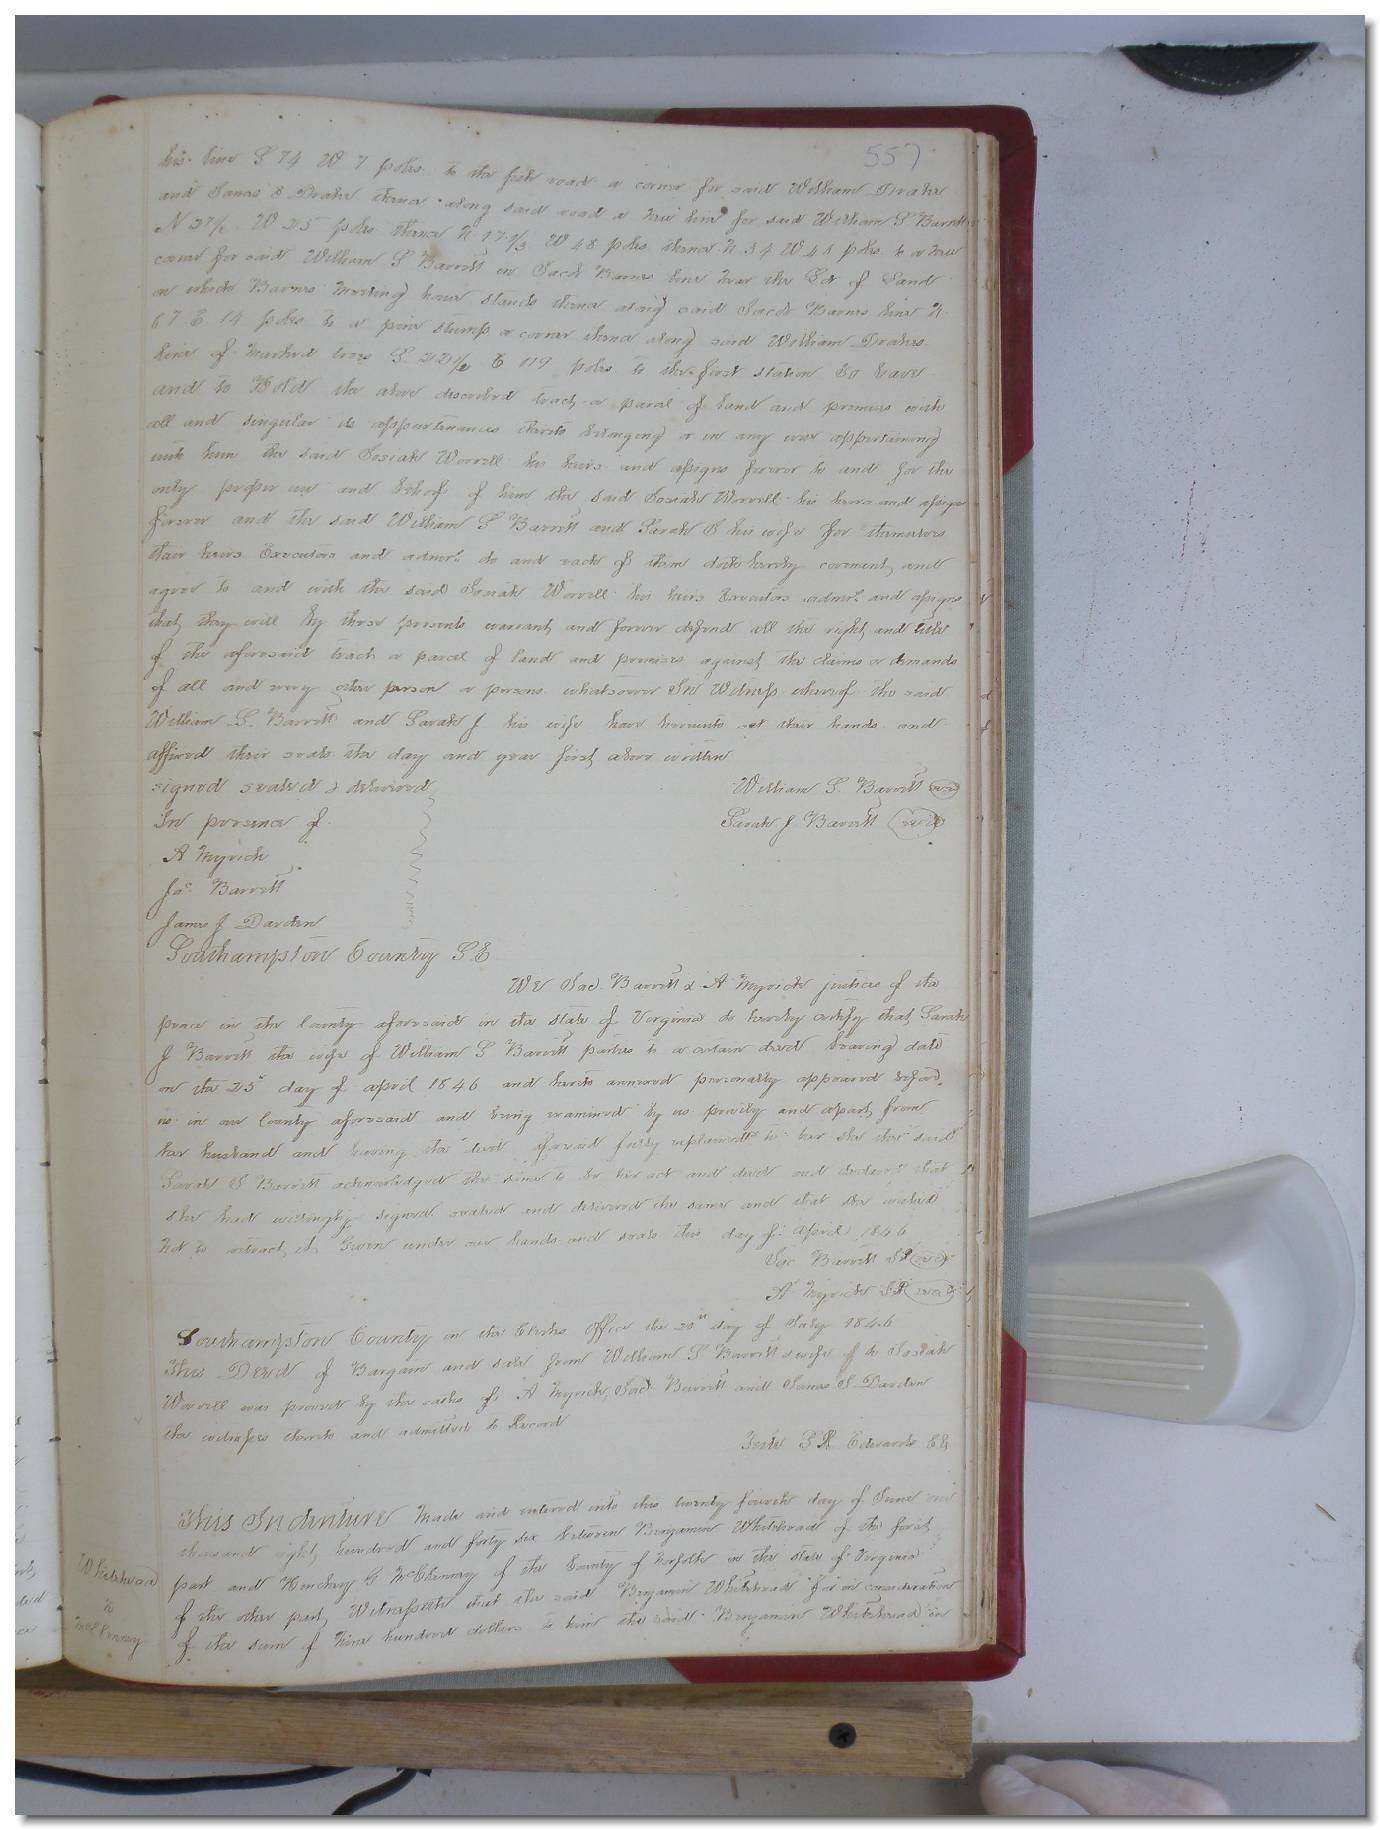 557
his line S 74 W 7 poles to the fork road a corner for said William Drake
and James S Drake thence along said road a new line for said William S Barrett
N 37½ W 25 poles thence N 17⅓ W 48 poles thence N 34 W 48 poles to a new
corner for said William S Barrett in Jacob Barnes line near the Lot of Land
on which Barnes Meeting house stands thence along said Jacob Barnes line N
67 E 14 poles to a pine stump a corner thence along said William Drakes
line of marked trees S 22½ E 119 poles to the first station To have
and to Hold the above described tract or parcel of land and premises with
all and singular its appurtenances thereto belonging or in any wise appertaining
unto him the said Josiah Worrell his heirs and assigns forever to and for the
only proper use and behoof of him the said Josiah Worrell his heirs and assigns
forever and the said William S Barrett and Sarah J his wife for themselves
their heirs Executors and admors do and each of them doth hereby covenant and
agree to and with the said Josiah Worrell his heirs Executors admors and assigns
that they will by these presents warrant and forever defend all the right and title
of the aforesaid tract or parcel of land and premises against the claims or demands
of all and every other person or persons whatsoever In Witness whereof the said
William S. Barrett and Sarah J his wife have hereunto set their hands and
affixed their seals the day and year first above written
signed sealed & delivered
William S. Barrett seal
In presence of
Sarah J Barrett seal
A Myrick
Jas. Barrett
James J Darden
Southampton County SC
We Jac Barrett & A Myrick justices of the
peace in the County aforesaid in the state of Virginia do hereby certify that Sarah
J Barrett the wife of William S Barrett parties to a certain deed bearing date
on the 25 day of april 1846 and hereto annexed personally appeared before
us in our County aforesaid and being examined by us privily and apart from
her husband and having the deed aforesaid fully explained to her she the said
Sarah J Barrett acknowledged the same to be her act and deed and declared that
she had willingly signed sealed and delivered the same and that she wished
not to retract it Given under our hands and seals this day of April 1846
Jac Barrett JP seal
A Myrick JP seal
Southampton County in the Clerks office the 20th day of July 1846
This Deed of Bargain and sale from William S Barrett & wife to Josiah
Worrell was proved by the oaths of A Myrick, Jac Barrett and James J. Darden
the witnesses thereto and admitted to Record
Teste Edwards CC
This Indenture Made and entered into this twenty fourth day of June one
thousand eight hundred and forty six between Benjamin Whitehead of the first
Whitehead
part and G McClenny of the County of Norfolk in the state of Virginia
to
of the other part, Witnesseth that the said Benjamin Whitehead for in consideration
McClenney
of the sum of Nine hundred dollars to him the said Benjamin Whitehead in